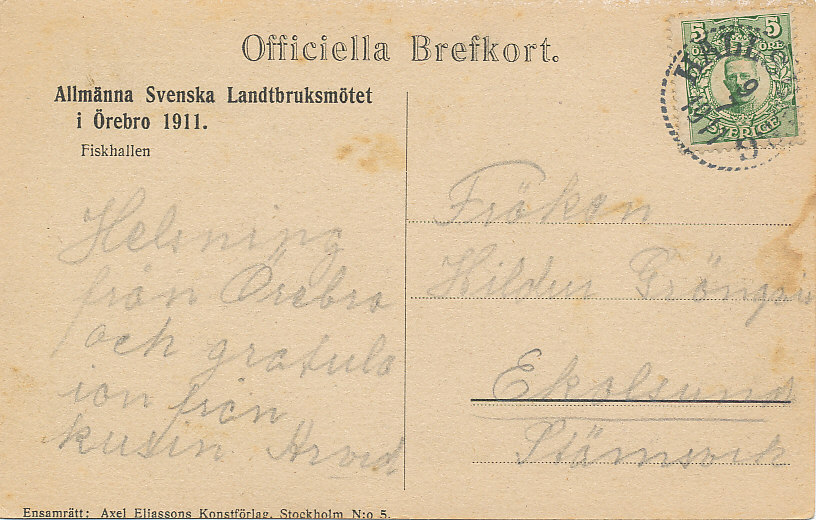 Officiella Brefkort.
Allmänna Svenska Landtbruksmötet
i Örebro 1911.
Fiskhallen
Helsning
från Örebro
och gratula
ion från
kusin Arvid
5 5
ÖRE
SVERIGE
Fröken
Hildur
Ekolsund
Ensamrätt: Axel Eliassons Konstförlag. Stockholm N:o 5.